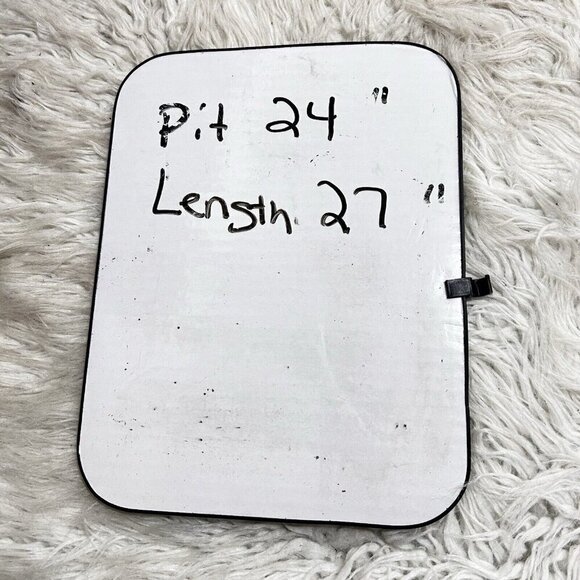 Pit 24 "
Length 27 "